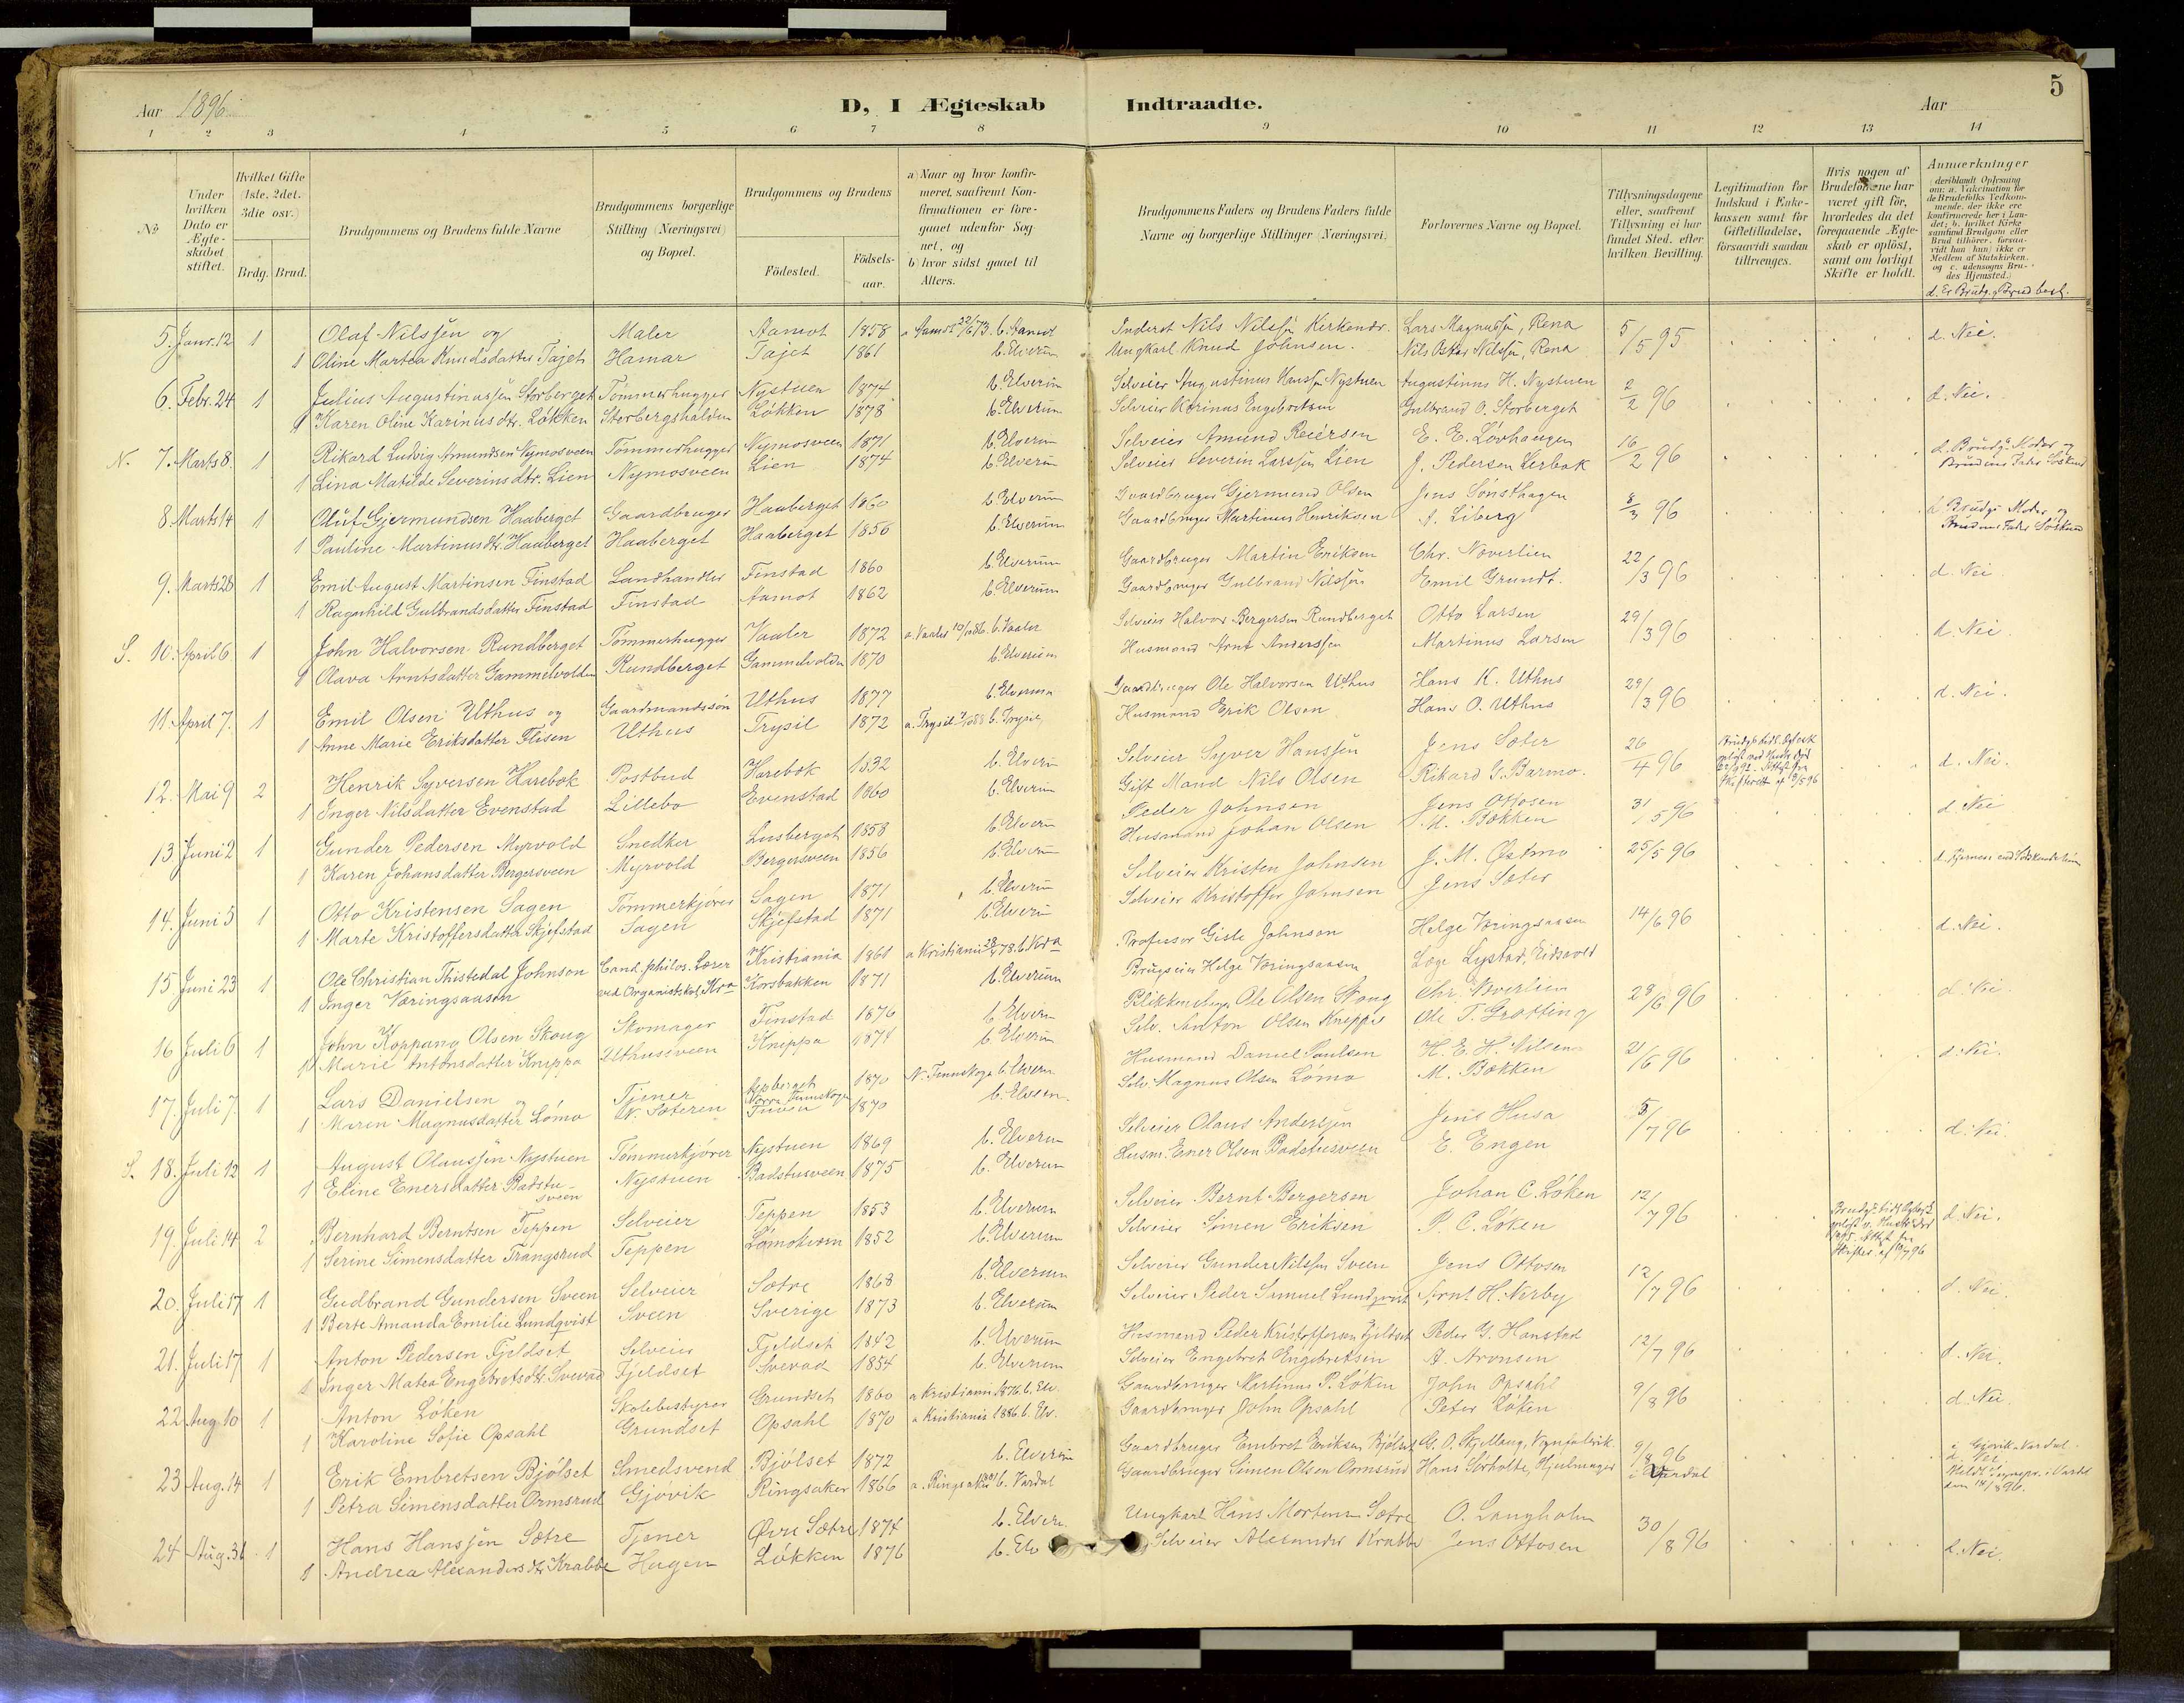 5
Aar 1896
D, I Ægteskab Indtraadte.
Aar
1 2 3 4 5 6 7 8 9 10 11 12 13 14
No
Under hvilken Dato er Ægteskabet stiftet.
Hvilket Gifte (1ste, 2det, 3die osv.)
Brdg. Brud.
Brudgommens og Brudens fulde Navne
Brudgommens borgerlige Stilling (Næringsvei) og Bopæl.
Brudgommens og Brudens
Födested.
Födsels-aar.
a) Naar og hvor konfirmeret, saafremt Konfirmationen er foregaaet udenfor Sognet, og
b) hvor sidst gaaet til Alters.
Brudgommens Faders og Brudens Faders fulde Navne og borgerlige Stillinger (Næringsvei)
Forlovernes Navne og Bopæl.
Tillysningsdagene eller, saafremt Tillysning ei har fundet Sted, efter hvilken Bevilling.
Legitimation for Indskud i Enkekassen samt for Giftetilladelse, forsaavidt saadan tiltrænges.
Hvis nogen af Brudefolkene har været gift för, hvorledes da det foregaaende Ægteskab er oplöst, samt om lovligt Skifte er holdt.
Anmærkninger (deriblandt Oplysning om: a. Vakcination for de Brudefolks Vedkommende, der ikke ere konfirmerede her i Landet; b. hvilket Kirkesamfund Brudgom eller Brud tilhörer, forsaavidt han (hun) ikke er Medlem af Statskirken, og c. udensogns Brudes Hjemsted.)
d. Er Brudg. og Brud besl.
5. Janr. 12 1 Olaf Nilssen og Maler Aamot 1858 a Aamot 22/6 73. b. Aamot Inderst Nils Nilssen Kirkendr. Lars Magnussen, Rena 5/5 95 d. Nei.
1 Oline Martea Knudsdatter Tajet Hamar Tajet 1861 b. Elverum Ungkarl Knud Johnsen. Nils Oskar Nilssen, Rena
6. Febr. 24 1 Julius Augustinussen Storberget Tømmerhugger Nystuen 1874 b. Elverum Selveier Augustinus Hanssen Nystuen Augustinus H. Nystuen 2/2 96 d. Nei.
1 Karen Oline Karinusdtr. Løkken Storbergshalden Løkken 1878 b. Elverum Selveier Karinus Engebretsen Gulbrand O. Storberget
N. 7. Marts 8. 1 Rikard Ludvig Amundsen Nymosveen Tømmerhugger Nymosveen 1871 b. Elverum Selveier Amund Reiersen E. E. Løvhaugen 16/2 96 d. Brudg. Moder og
1 Lina Matilde Severinsdtr. Lien Nymosveen Lien 1874 b. Elverum Selveier Severin Larssen Lien J. Pedersen Lerbak Brudens Fader Søskend
8. Marts 14 1 Oluf Gjermundsen Haaberget Gaardbruger Haaberget 1860 b. Elverum Gaardbruger Gjermund Olsen Jens Sønsthagen 8/3 96 d. Brudgs Moder og
1 Pauline Martinusdtr. Haaberget Haaberget Haaberget 1856 b. Elverum Gaardbruger Martinus Henriksen A. Liberg Brudens Fader Søskend
9. Marts 28 1 Emil August Martinsen Finstad Landhandler Finstad 1860 b. Elverum Gaardbruger Martin Eriksen Chr. Noverlien 22/3 96 d. Nei
1 Ragnhild Gulbrandsdatter Finstad Finstad Aamot 1862 b. Elverum Gaardbruger Gulbrand Nilssen Emil Grundt.
S. 10. April 6 1 John Halvorsen Rundberget Tømmerhugger Vaaler 1872 a. Vaaler 10/10 86. b. Vaaler Selveier Halvor Bergersen Rundberget Otto Larsen 29/3 96 d. Nei.
1 Olava Arntsdatter Gammelvolden Rundberget Gammelvolden 1870 b. Elverum Husmand Arnt Anderssen Martinus Larsen
11. April 7. 1 Emil Olsen Uthus og Gaardmandssøn Uthus 1877 b. Elverum Gaardbruger Ole Halvorsen Uthus Hans K. Uthus 29/3 96 d. Nei.
1 Anne Marie Eriksdatter Flisen Uthus Trysil 1872 a. Trysil b. Trysil Husmand Erik Olsen Hans O. Uthus
12. Mai 9 2 Henrik Syversen Harebok Postbud Harebok 1832 b. Elverum Selveier Syver Hanssen Jens Sæter 26/4 96 d. Nei.
1 Inger Nilsdatter Evenstad Lillebo Evenstad 1860 b. Elverum Gift Mand Nils Olsen Rikard G. Barmo.
13. Juni 2 1 Gunder Pedersen Myrvold Snedker Lusberget 1858 b. Elverum Peder Johnsen Jens Ottosen 31/5 96 d. Nei
1 Karen Johansdatter Bergersveen Myrvold Bergersveen 1856 b. Elverum Husmand Johan Olsen M. Bakken
14. Juni 5 1 Otto Kristensen Sagen Tømmerkjører Sagen 1871 b. Elverum Selveier Kristen Johnsen J. M. Østmo 25/5 96 d. Fjernere end Søskendebørn
1 Marte Kristoffersdatter Skjefstad Sagen Skjefstad 1871 b. Elverum Selveier Kristoffer Johnsen Jens Sæter
15 Juni 23 1 Ole Christian Thistedal Johnson Cand. philos. Lærer Kristiania 1861 a Kristiania b. Kra Professor Gisle Johnson Helge Væringsaasen 14/6 96 d. Nei.
1 Inger Væringsaasen ved Organistskol. Kra Korsbakken 1871 b. Elverum Brugseier Helge Væringsaasen Læge Lystad, Eidsvold
16 Juli 6 1 John Koppang Olsen Skoug Skomager Finstad 1876 b. Elverum Blikkenslager Ole Olsen Skoug Chr. Noverlien 28/6 96 d. Nei.
1 Marie Antonsdatter Kneppa Uthusveen Kneppa 1874 b. Elverum Selv. Anton Olsen Kneppe Ole T. Grøtting
17. Juli 7. 1 Lars Danielsen og Tjener Norra Finnskoga 1870 N. Finnskoga b. Elverum Husmand Daniel Paulsen H. E. H. Nilsen 21/6 96 d. Nei.
1 Maren Magnusdatter Lømo N. Sæteren 1870 b. Elverum Selv. Magnus Olsen Lømo M. Bakken
S. 18. Juli 12 1 August Olaussen Nystuen Tømmerkjører Nystuen 1869 b. Elverum Selveier Olaus Anderssen Jens Husa 5/7 96 d. Nei.
1 Eline Enersdatter Badstusveen Nystuen Badstusveen 1875 b. Elverum Husm. Ener Olsen Badstusveen E. Engen
19. Juli 14 2 Bernhard Berntsen Teppen Selveier Teppen 1853 b. Elverum Selveier Bernt Bergersen Johan C. Løken 12/7 96 d. Nei.
1 Serine Simensdatter Trangsrud Teppen Lømokvern 1852 b. Elverum Selveier Simen Eriksen P. C. Løken
20. Juli 17 1 Gudbrand Gundersen Sveen Selveier Sætre 1868 b. Elverum Selveier Gunder Nilssen Sveen Jens Ottosen 12/7 96 d. Nei.
1 Berte Amanda Emilie Lundqvist Sveen Sverige 1873 b. Elverum Selveier Peder Samuel Lundqvist Arnt H. Nerby
21. Juli 17 1 Anton Pedersen Fjeldset Selveier Fjeldset 1842 b. Elverum Husmand Peder Kristoffersen Fjeldset Peder G. Hanstad 12/7 96 d. Nei.
1 Inger Matea Engebretsdtr. Svevad Fjeldset Svevad 1854 b. Elverum Selveier Engebret Engebretsen A. Aronsen
22 Aug. 10 1 Anton Løken Skolebestyrer Grundset 1860 a Kristiania 1876 b. Elv. Gaardbruger Martinus P. Løken John Opsahl 9/8 96 d. Nei
1 Karoline Sofie Opsahl Grundset Opsahl 1870 a Kristiania 1886 b. Elv. Gaardbruger John Opsahl Peter Løken
23 Aug. 14 1 Erik Embretsen Bjølset Smedsvend Bjølset 1872 b. Elverum Gaardbruger Embret Eriksen Bjølset G. O. Skjellaug, Vognfabrik. 9/8 96 c. Gjøvik, Vardal
1 Petra Simensdatter Ormsrud Gjøvik Ringsaker 1866 a. Ringsaker b. Vardal Gaardbruger Simen Olsen Ormsrud Hans Sørholte, Hjulmager i Vardal d. Nei
24 Aug. 31 1 Hans Hanssen Sætre Tjener Øvre Sætre 1874 b. Elverum Ungkarl Hans Mortensen Sætre O. Langholm 30/8 96 d. Nei.
1 Andrea Alexandersdtr. Krabbe Hagen Løkken 1876 b. Elv Selveier Alexander Krabbe Jens Ottosen